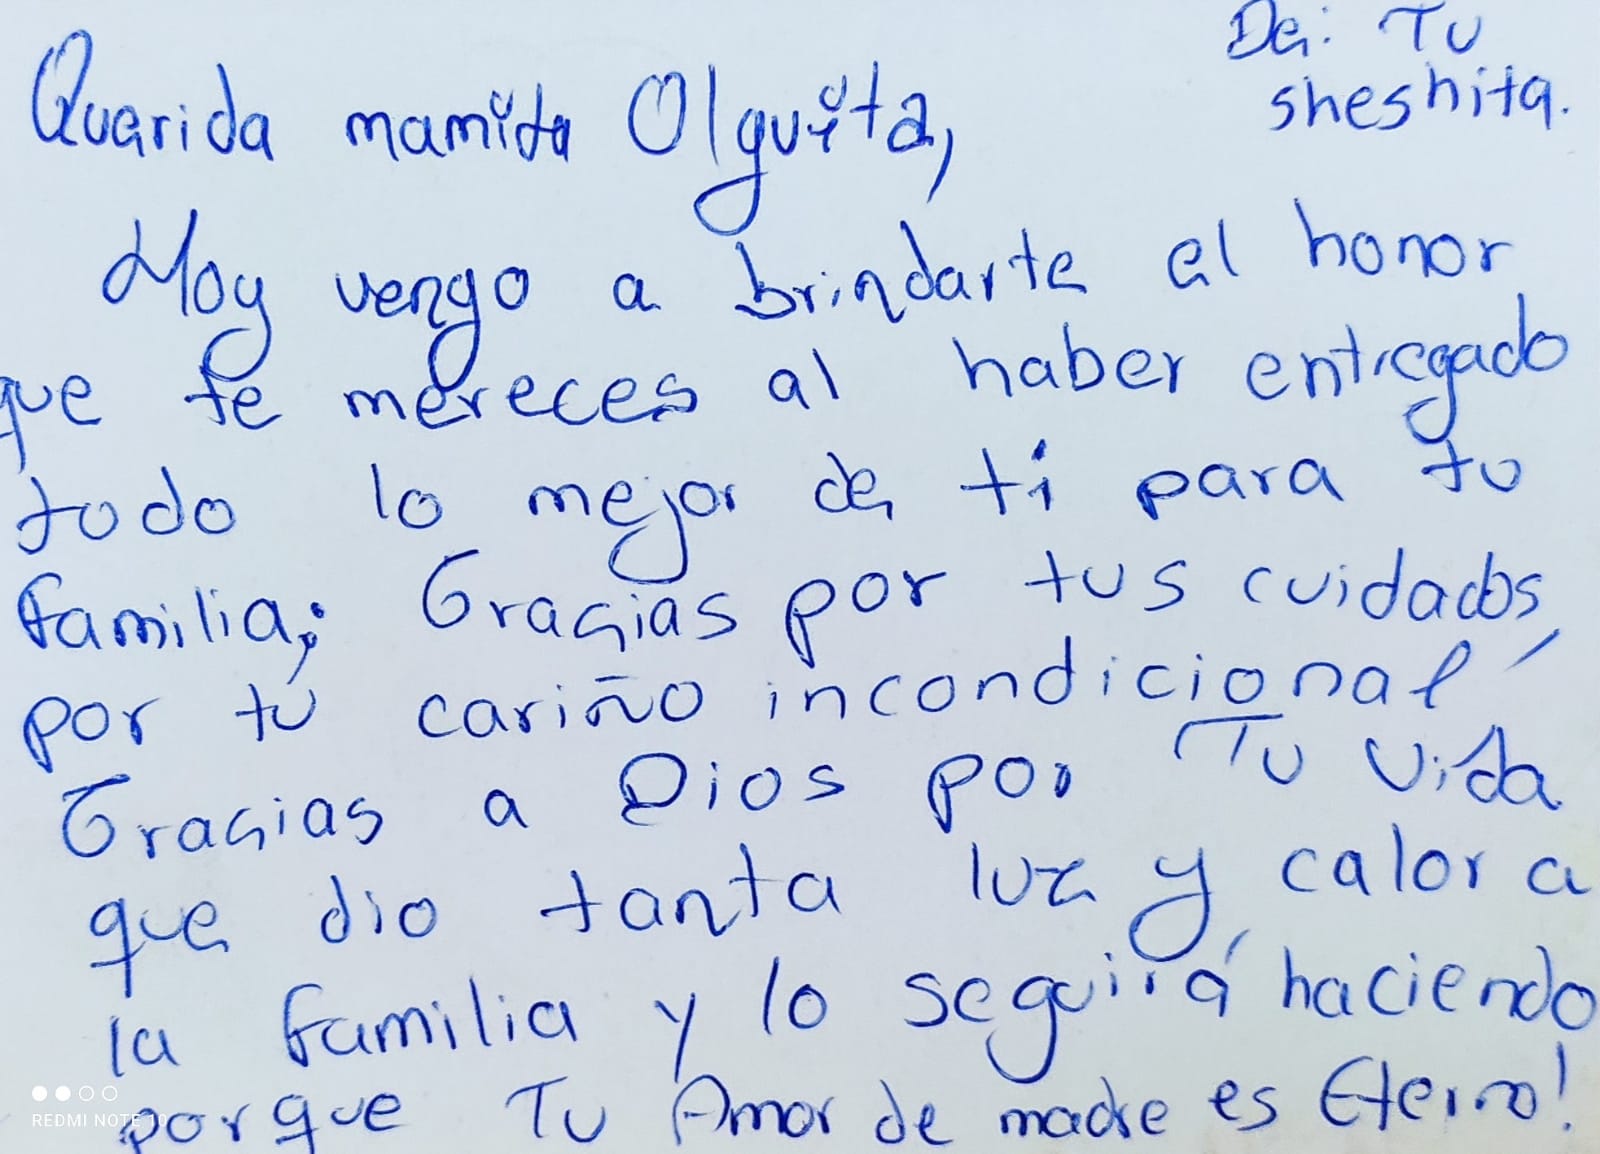 De: Tu
sheshita.
Querida mamita Olguita,
Hoy vengo a brindarte el honor
que te mereces al haber entregado
todo lo mejor de ti para tu
familia; Gracias por tus cuidados,
por tú cariño incondicional
Gracias a Dios por Tu vida
que dio tanta luz y calor a
la familia y lo seguirá haciendo
porque Tu Amor de madre es Eterno!
REDMI NOTE 10